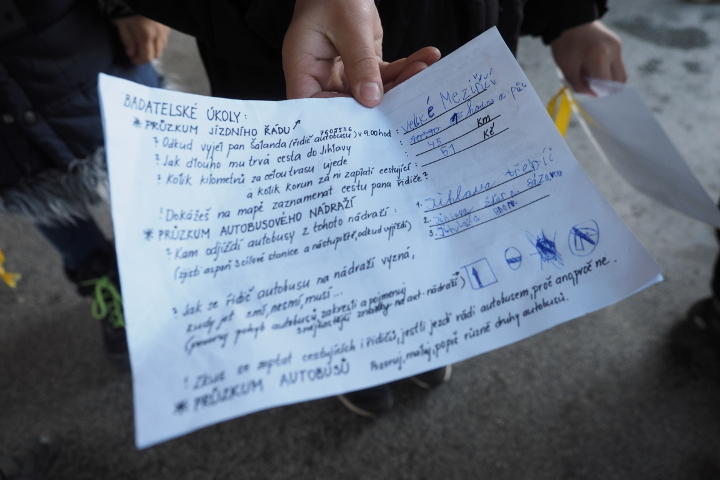 BADATELSKÉ ÚKOLY:
* PRŮZKUM JÍZDNÍHO ŘÁDU
? Odkud vyjel pan Šalanda (řidič autobusu) v 9.00 hod : Velké Meziříčí
? Jak dlouho mu trvá cesta do Jihlavy : hodinu a půl
? Kolik kilometrů za celou trasu ujede : 45 km
a kolik korun za ni zaplatí cestující : 51 Kč
! Dokážeš na mapě zaznamenat cestu pana řidiče?
* PRŮZKUM AUTOBUSOVÉHO NÁDRAŽÍ
? Kam odjíždí autobusy z tohoto nádraží : 1. Jihlava Třebíč
(zjisti aspoň 3 cílové stanice a nástupiště, odkud vyjíždí) 2. Žďár nad Sázavou
3. Jihlava
? Jak se řidič autobusu na nádraží vyzná,
kudy jet smí, nesmí, musí...
(pozoruj pohyb autobusů, zakresli a pojmenuj
3 nejčastější značky na aut. nádraží)
! Zkus se zeptat cestujících i řidičů, jestli jezdí rádi autobusem, proč ano, proč ne.
* PRŮZKUM AUTOBUSŮ Pozoruj, maluj, popiš různé druhy autobusů.